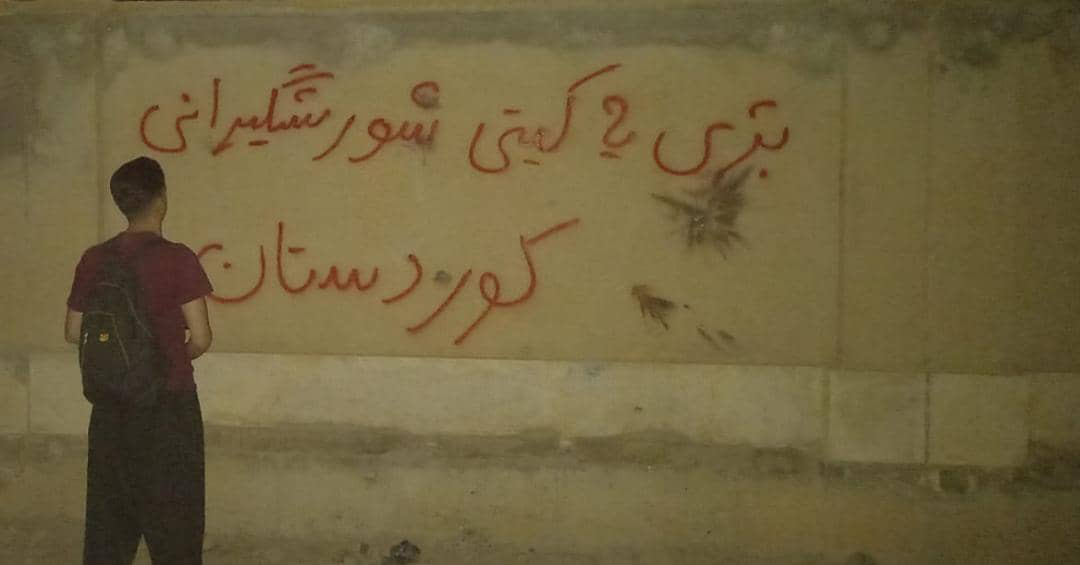 بژی یه کیتی شورشگیرانی
کوردستان